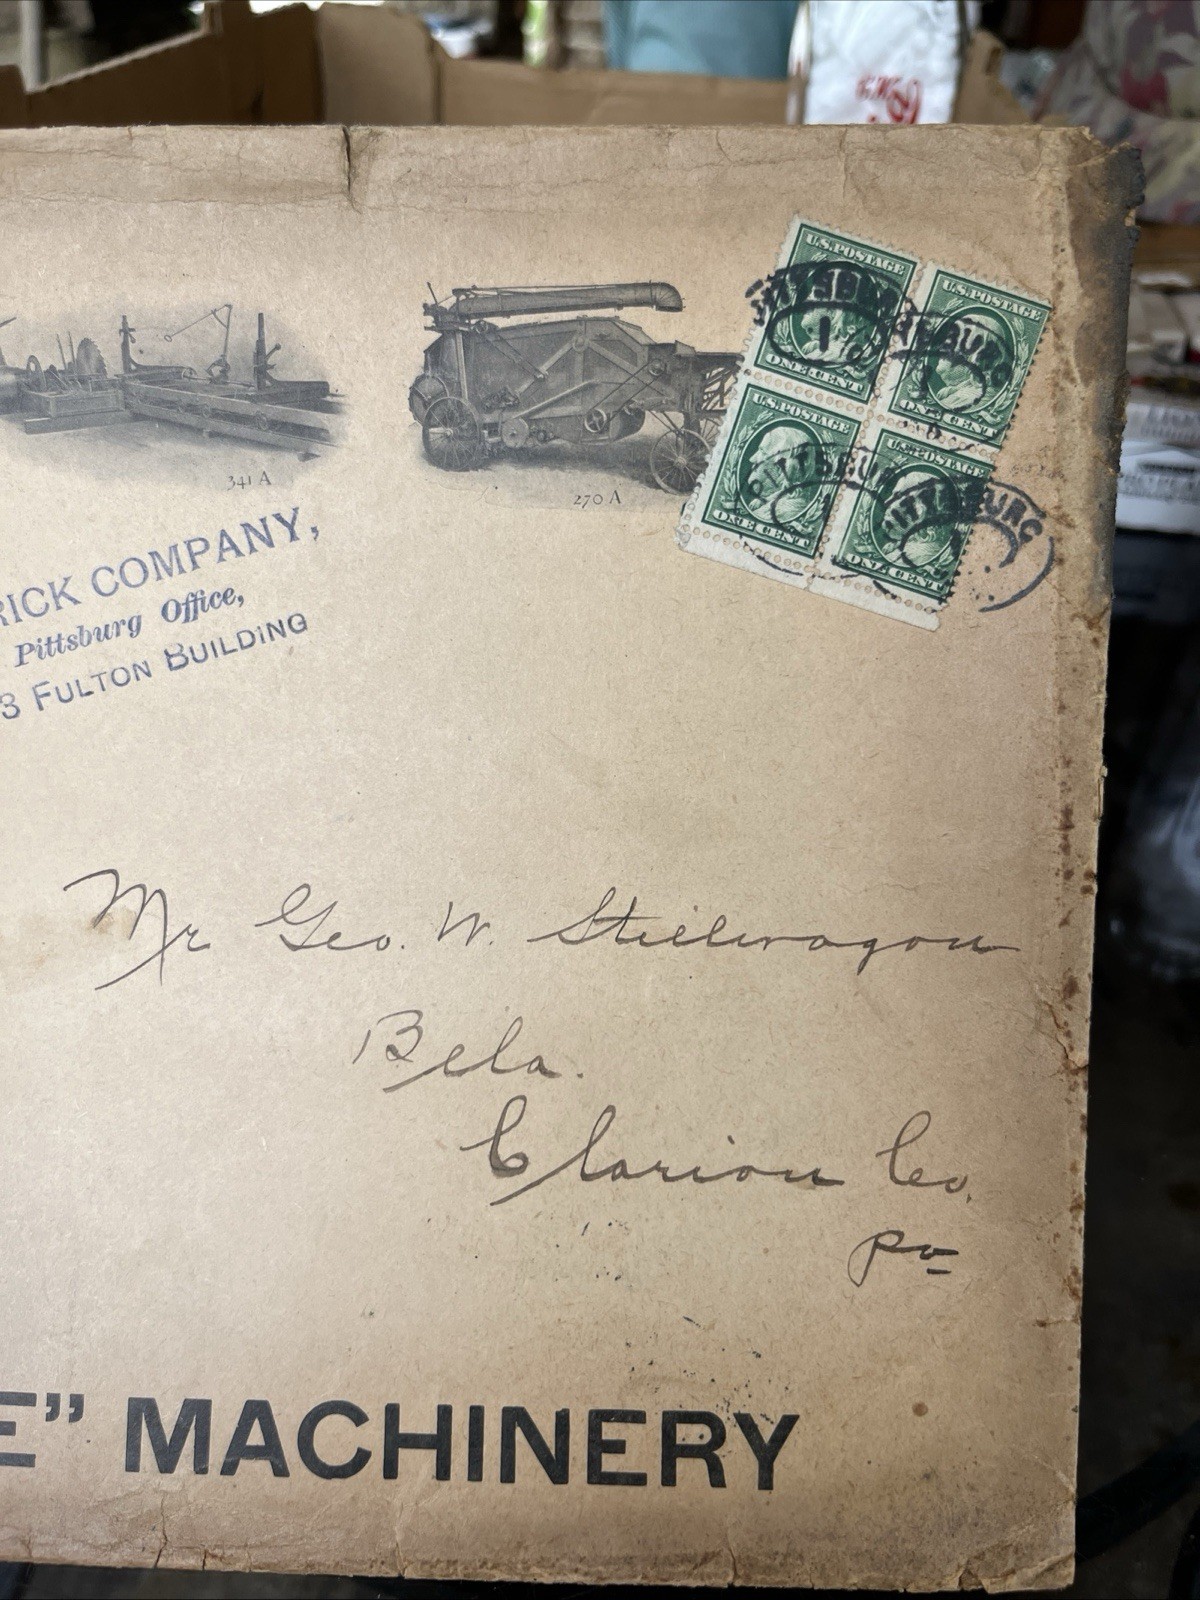 U.S. POSTAGE
U.S. POSTAGE
PITTSBURG
1
ONE CENT
ONE CENT
U.S. POSTAGE
U.S. POSTAGE
PITTSBURG
PITTSBURG
ONE CENT
ONE CENT
341 A
270 A
RICK COMPANY,
Pittsburg Office,
3 FULTON BUILDING
Mr Geo. W. Stillwagon
Bela.
Clarion Co.
Pa
E” MACHINERY